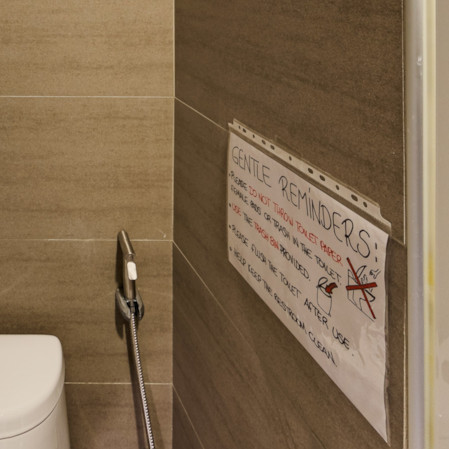 GENTLE REMINDERS:
• PLEASE DO NOT THROW TOILET PAPER,
FEMININE PADS OR TRASH IN THE TOILET.
• USE THE TRASH BIN PROVIDED.
• PLEASE FLUSH THE TOILET AFTER USE.
• HELP KEEP THE RESTROOM CLEAN!